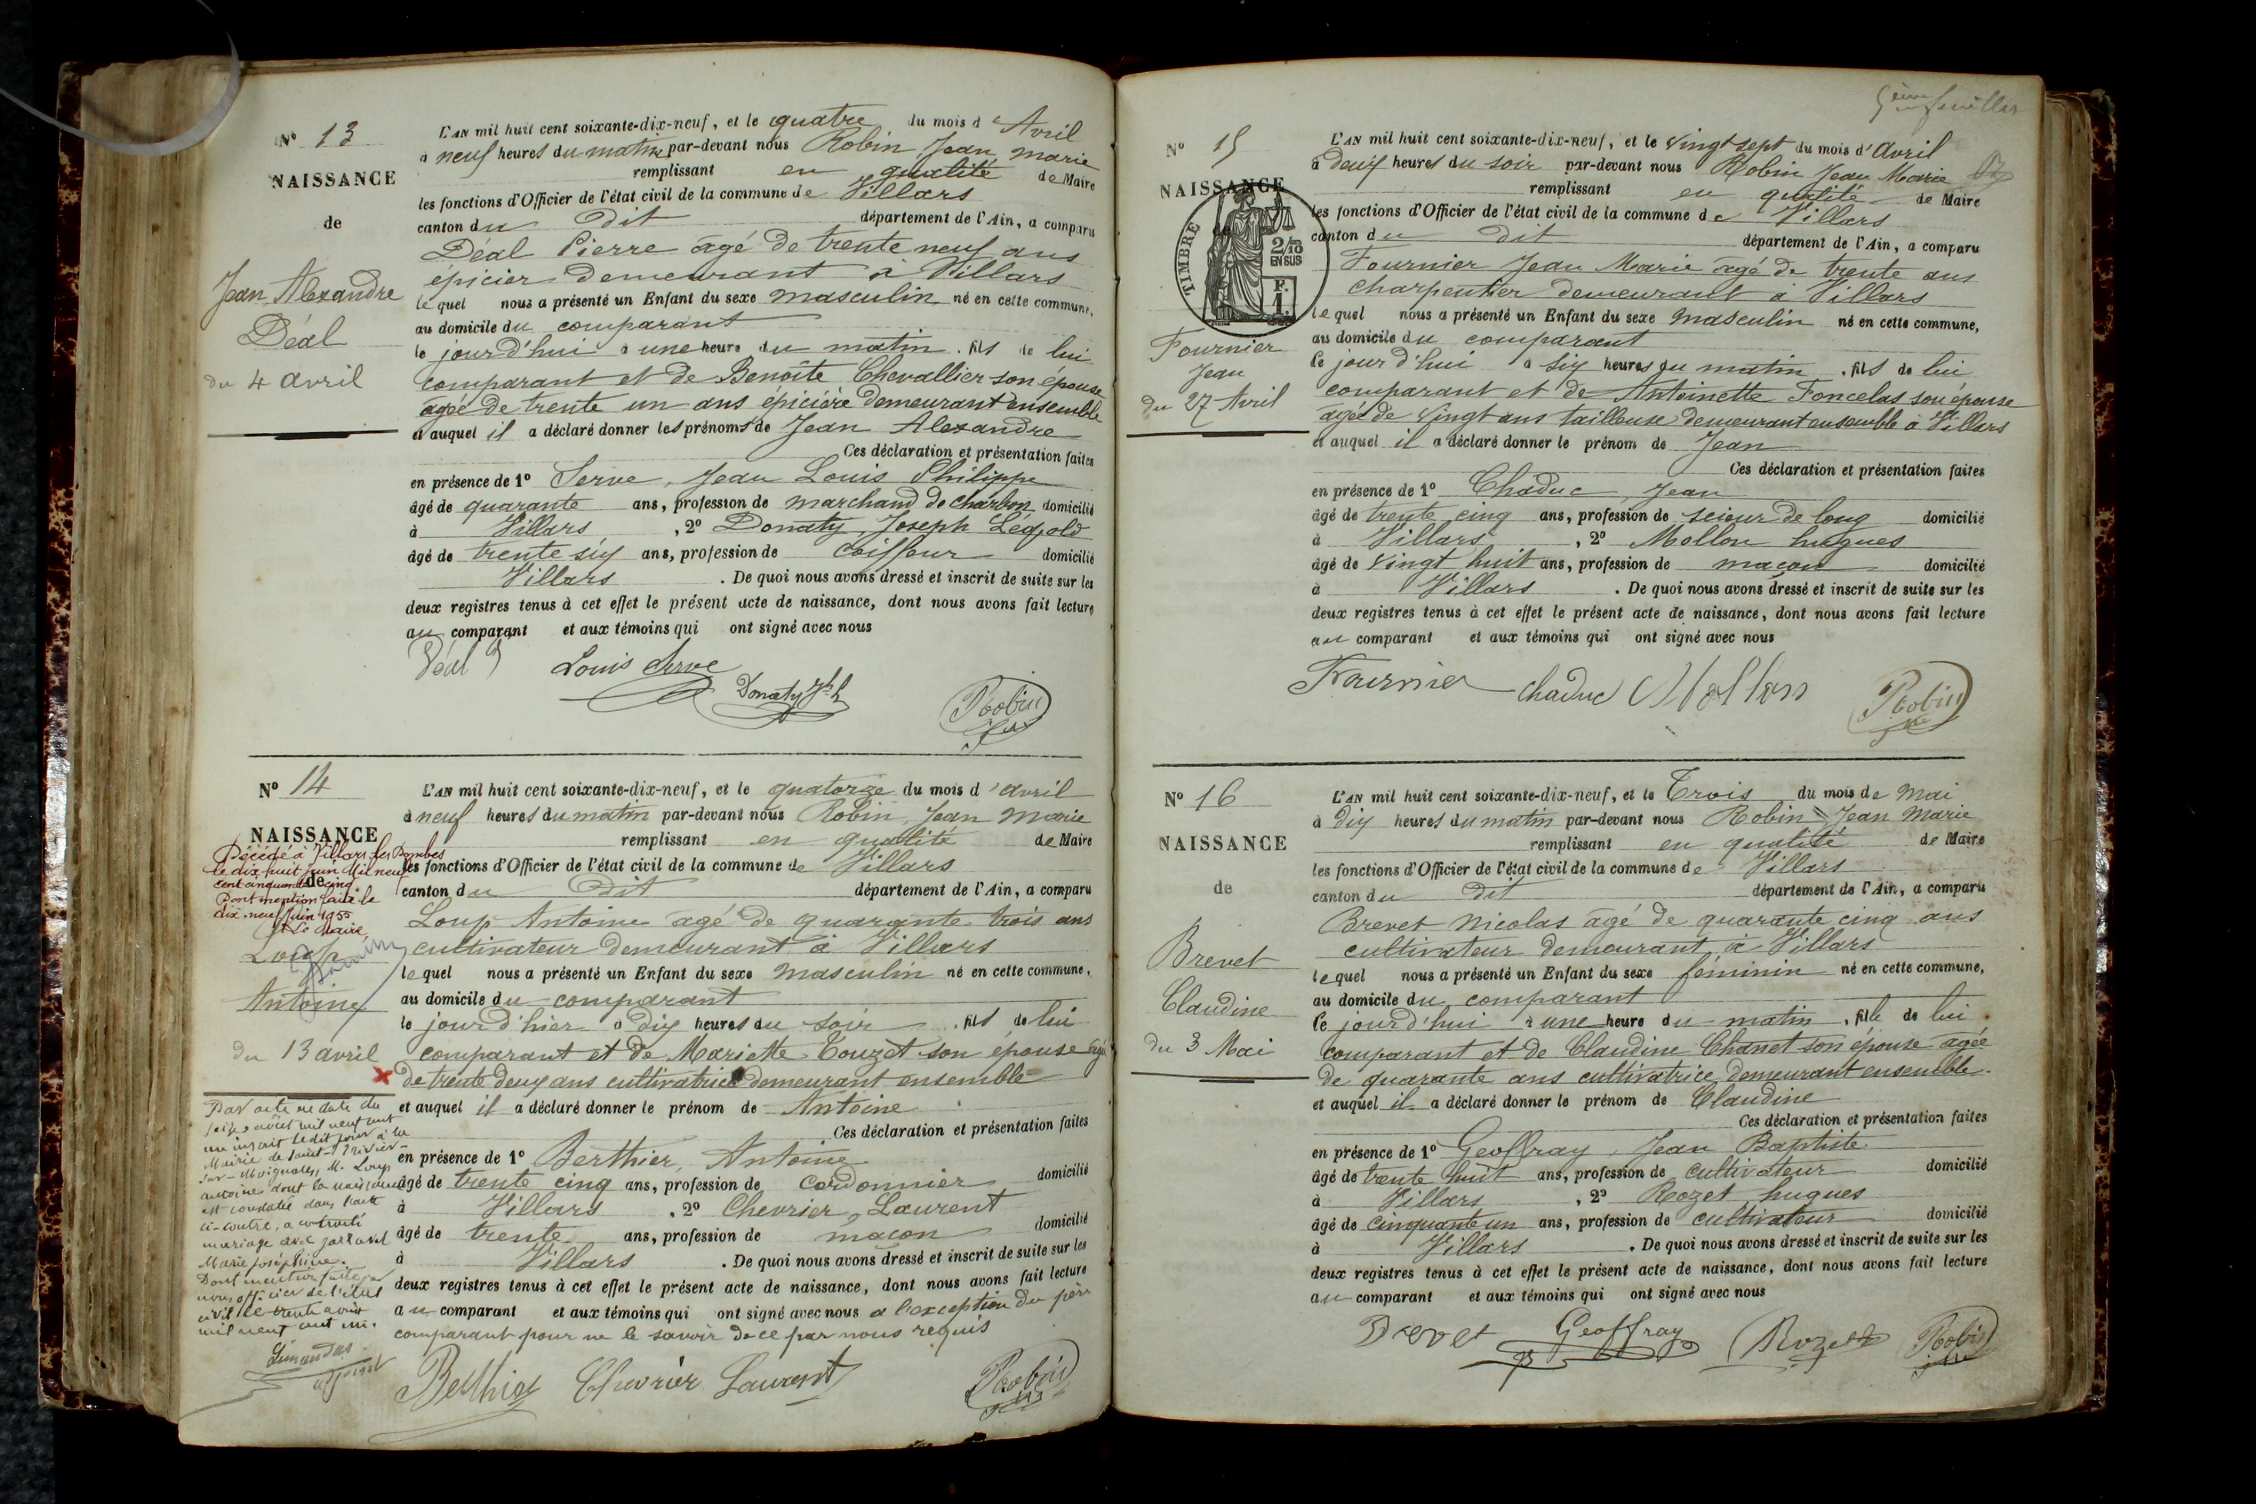 Nº 13
NAISSANCE
de
Jean Alexandre
Déal
du 4 avril
L'AN mil huit cent soixante-dix-neuf, et le quatre du mois d'Avril
à neuf heures du matin par-devant nous Robin Jean Marie
remplissant en qualité de Maire
les fonctions d'Officier de l'état civil de la commune de Villars
canton du dit département de l'Ain, a comparu
Déal Pierre âgé de trente neuf ans
épicier demeurant à Villars
lequel nous a présenté un Enfant du sexe masculin né en cette commune,
au domicile du comparant
le jour d'hui à une heure du matin, fils de lui
comparant et de Benoîte Chevallier son épouse
âgée de trente un ans épicière demeurant ensemble
et auquel il a déclaré donner les prénoms de Jean Alexandre
Ces déclaration et présentation faites
en présence de 1º Serve, Jean Louis Philippe
âgé de quarante ans, profession de marchand de charbon domicilié
à Villars, 2º Donaty Joseph Léopold
âgé de trente six ans, profession de coiffeur domicilié
Villars. De quoi nous avons dressé et inscrit de suite sur les
deux registres tenus à cet effet le présent acte de naissance, dont nous avons fait lecture
au comparant et aux témoins qui ont signé avec nous
Déal Louis Serve Donaty Jph Robin
Nº 14
NAISSANCE
de
Décédé à Villars les Dombes
le dix huit juin Mil neuf
cent cinquante cinq
Dont mention faite le
dix neuf Juin 1955
Le Maire,
Loup
Antoine
du 13 avril
Par acte en date du
seize août mil neuf cent
un inscrit ledit jour à la
Mairie de Saint-Trivier-
sur-Moignans, M. Loup
Antoine dont la naissance
est constatée dans l'acte
ci-contre, a contracté
mariage avec
Marie Joséphine.
Dont mention faite par
nous officier de l'état
civil le trente août
mil neuf cent un.
L'AN mil huit cent soixante-dix-neuf, et le quatorze du mois d'avril
à neuf heures du matin par-devant nous Robin, Jean Marie
remplissant en qualité de Maire
les fonctions d'Officier de l'état civil de la commune de Villars
canton du dit département de l'Ain, a comparu
Loup Antoine âgé de quarante trois ans
cultivateur demeurant à Villars
lequel nous a présenté un Enfant du sexe masculin né en cette commune,
au domicile du comparant
le jour d'hier à dix heures du soir, fils de lui
comparant et de Mariette Touzet son épouse âgé
de trente deux ans cultivatrice demeurant ensemble
et auquel il a déclaré donner le prénom de Antoine
Ces déclaration et présentation faites
en présence de 1º Berthier, Antoine
âgé de trente cinq ans, profession de cordonnier domicilié
à Villars, 2º Chevrier, Laurent
âgé de trente ans, profession de maçon domicilié
à Villars. De quoi nous avons dressé et inscrit de suite sur les
deux registres tenus à cet effet le présent acte de naissance, dont nous avons fait lecture
au comparant et aux témoins qui ont signé avec nous a l'exception du père
comparant pour ne le savoir de ce par nous requis
Berthier Chevrier Laurent Robin
Nº 15
NAISSANCE
TIMBRE
2/10
EN SUS
F.
1.
Fournier
Jean
du 27 Avril
L'AN mil huit cent soixante-dix-neuf, et le vingt sept du mois d'Avril
à deux heures du soir par-devant nous Robin Jean Marie
remplissant en qualité de Maire
les fonctions d'Officier de l'état civil de la commune de Villars
canton du dit département de l'Ain, a comparu
Fournier Jean Marie âgé de trente ans
charpentier demeurant à Villars
lequel nous a présenté un Enfant du sexe masculin né en cette commune,
au domicile du comparant
le jour d'hui à six heures du matin, fils de lui
comparant et de Antoinette Foncelas son épouse
âgée de vingt ans tailleuse demeurant ensemble à Villars
et auquel il a déclaré donner le prénom de Jean
Ces déclaration et présentation faites
en présence de 1º Chaduc, Jean
âgé de trente cinq ans, profession de scieur de long domicilié
à Villars, 2º Mollon hugues
âgé de vingt huit ans, profession de maçon domicilié
à Villars. De quoi nous avons dressé et inscrit de suite sur les
deux registres tenus à cet effet le présent acte de naissance, dont nous avons fait lecture
au comparant et aux témoins qui ont signé avec nous
Fournier chaduc Mollon Robin
Nº 16
NAISSANCE
de
Brevet
Claudine
du 3 Mai
L'AN mil huit cent soixante-dix-neuf, et le Trois du mois de Mai
à dix heures du matin par-devant nous Robin Jean Marie
remplissant en qualité de Maire
les fonctions d'Officier de l'état civil de la commune de Villars
canton du dit département de l'Ain, a comparu
Brevet Nicolas âgé de quarante cinq ans
cultivateur demeurant à Villars
lequel nous a présenté un Enfant du sexe féminin né en cette commune,
au domicile du comparant
le jour d'hui à une heure du matin, fille de lui
comparant et de Claudine Chanet son épouse âgée
de quarante ans cultivatrice demeurant ensemble
et auquel il a déclaré donner le prénom de Claudine
Ces déclaration et présentation faites
en présence de 1º Geoffray, Jean Baptiste
âgé de trente huit ans, profession de cultivateur domicilié
à Villars, 2º Rozet hugues
âgé de cinquante un ans, profession de cultivateur domicilié
à Villars. De quoi nous avons dressé et inscrit de suite sur les
deux registres tenus à cet effet le présent acte de naissance, dont nous avons fait lecture
au comparant et aux témoins qui ont signé avec nous
Brevet Geoffray Rozet Robin